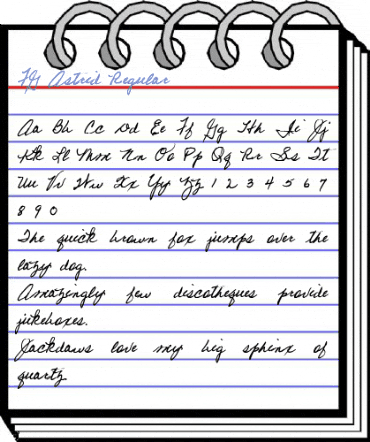 FG Astrid Regular
Aa Bb Cc Dd Ee Ff Gg Hh Ii Jj
Kk Ll Mm Nn Oo Pp Qq Rr Ss Tt
Uu Vv Ww Xx Yy Zz 1 2 3 4 5 6 7
8 9 0
The quick brown fox jumps over the
lazy dog.
Amazingly few discotheques provide
jukeboxes.
Jackdaws love my big sphinx of
quartz